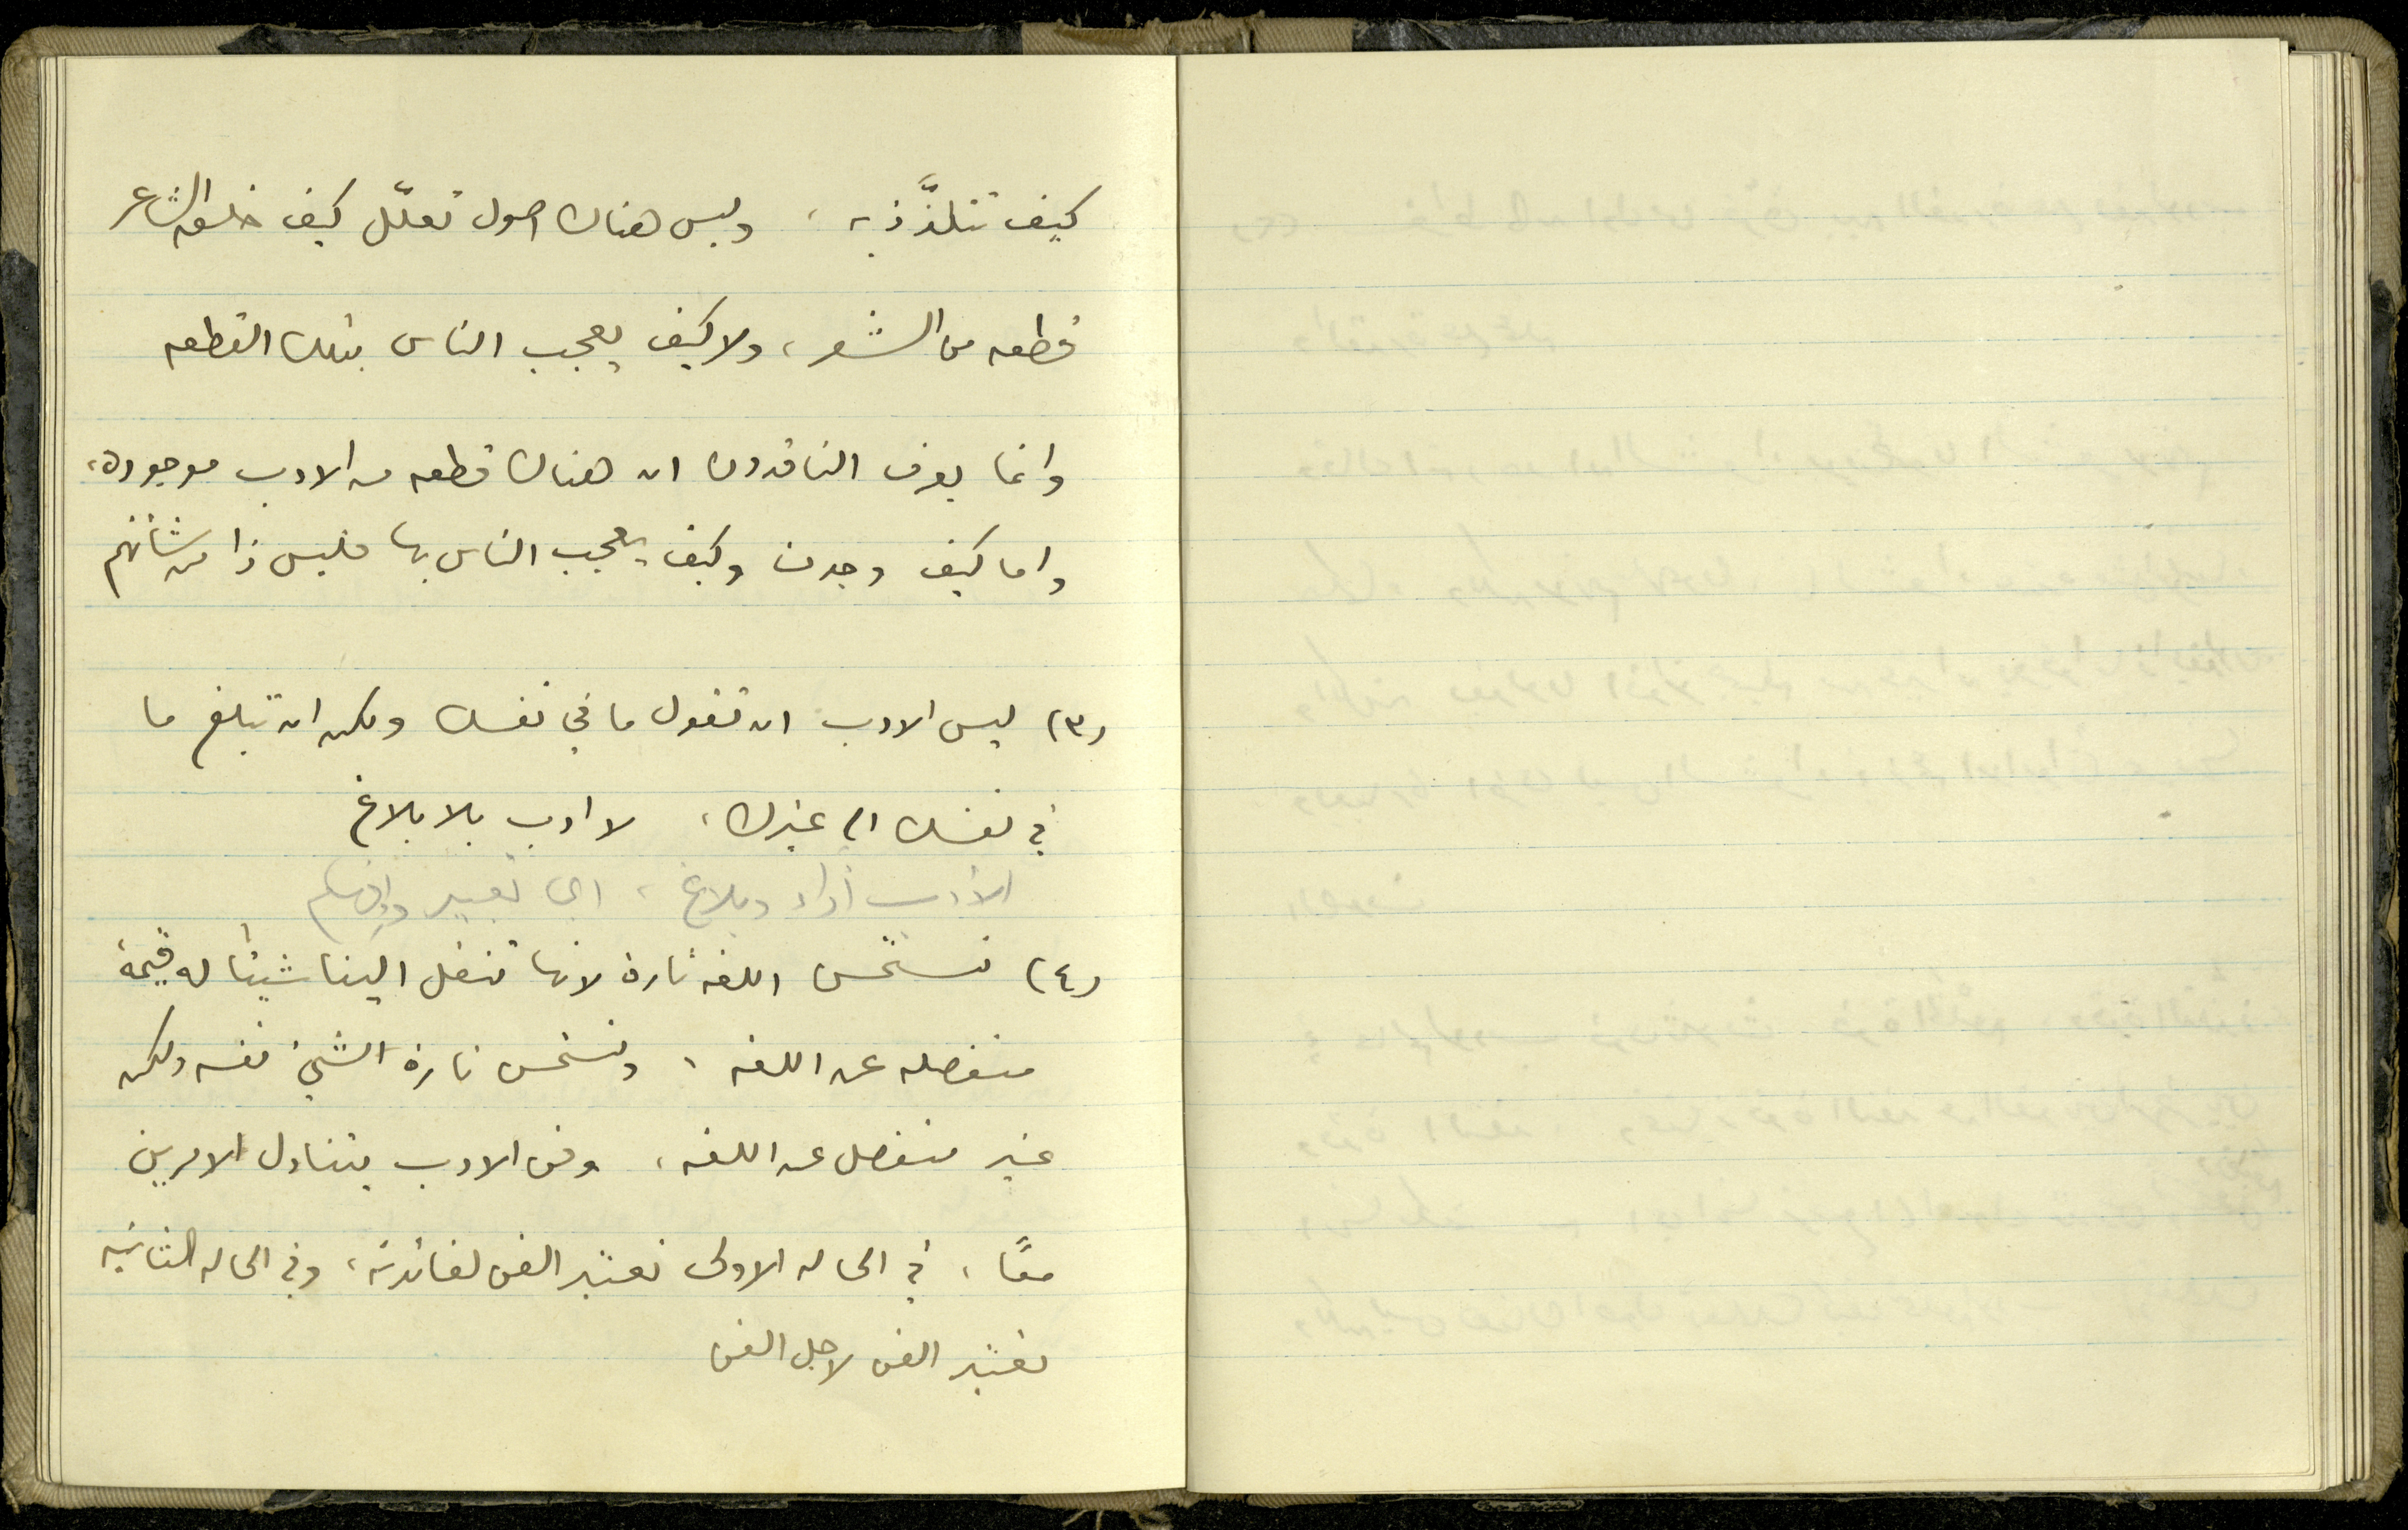 كيف تتلذّذ به ، وليس هناك اصول تعلّل كيف خلق الشاعر
قطعه من الشعر ، ولا كيف يعجب الناس بتلك القطعه
وانما يعرف الناقدون ان هناك قطعه من الادب موجوده ،
واما كيف وجدت وكيف يعجب الناس بها فليس ذا من شأنهم
(٣) ليس الادب ان تقول ما في نفسك ولكن ان تبلغ ما
في نفسك الى غيرك ، لا ادب بلا بلاغ
الأدب أداء وبلاغ ، اي تعبير وإفهام
(٤) نستحسن اللغه تارة لانها تنقل الينا شيئا له قيمة
منفصله عن اللغه ، ونستحسن تارة الشيئ نفسه ولكن
غير منفصل عن اللغه ، وفن الادب يتناول الامرين
معًا ، في الحاله الاولى نعتبر الفن لفائدته ، وفي الحاله الثانيه
نعتبر الفن لاجل الفن